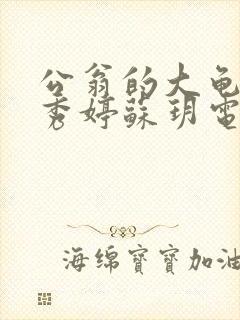 公翁的大龟
秀婷蘇玥電
海绵寶寶加油